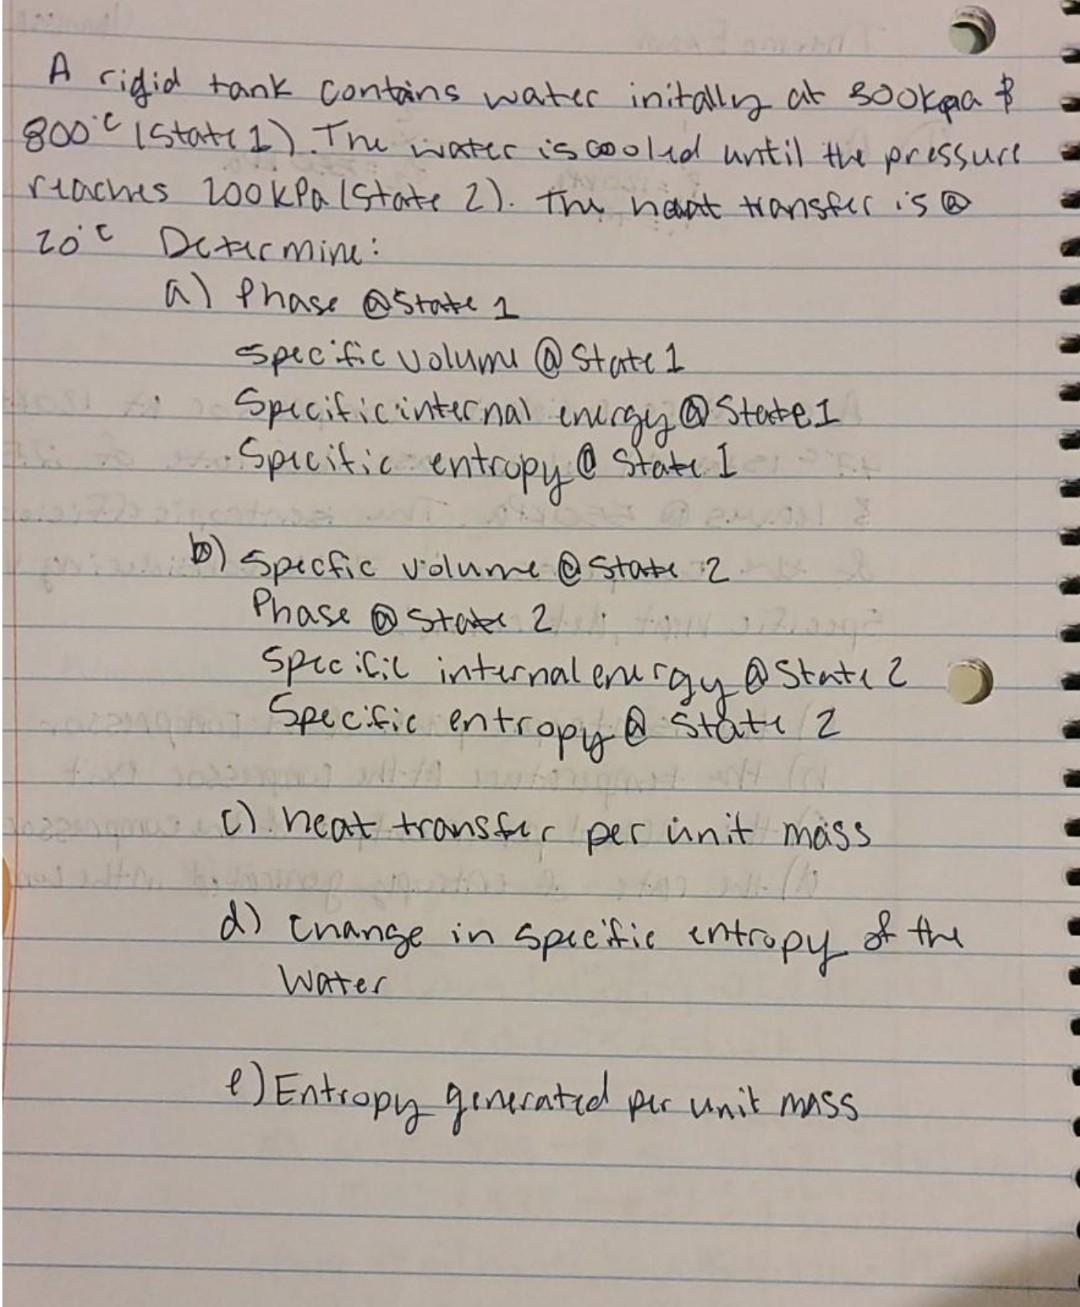 A rigid tank contains water initally at 300kpa &
800°C (State 1). The water is cooled until the pressure
reaches 200kPa (State 2). The heat transfer is @
20°C Determine:
a) Phase @State 1
Specific volume @ State 1
Specific internal energy @ State 1
Specific entropy @ State 1
b) Specfic volume @ State 2
Phase @ State 2
Specific internal energy @ State 2
Specific entropy @ State 2
c). heat transfer per unit mass
d) Change in specific entropy of the
Water
e) Entropy generated per unit mass